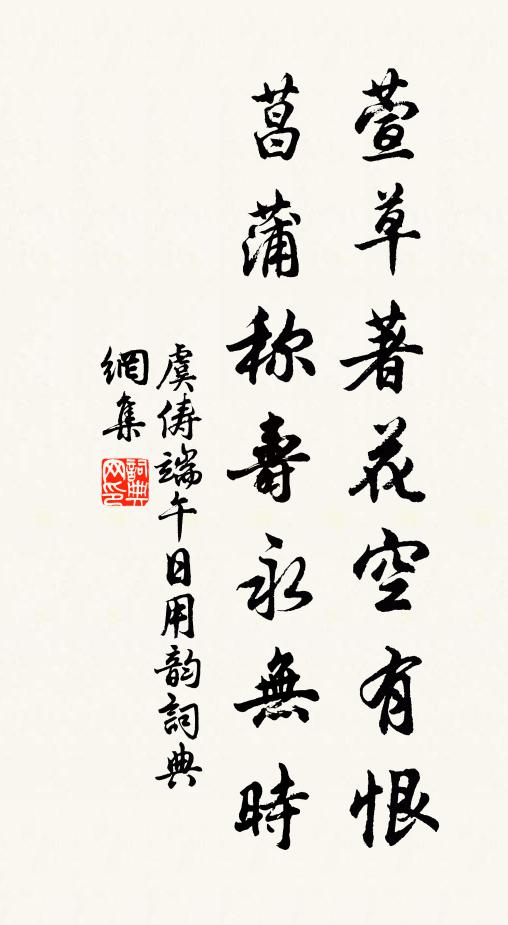 萱草著花空有恨
菖蒲称壽永無時
虞俦端午日用韵詞典
網集
詞典
网印